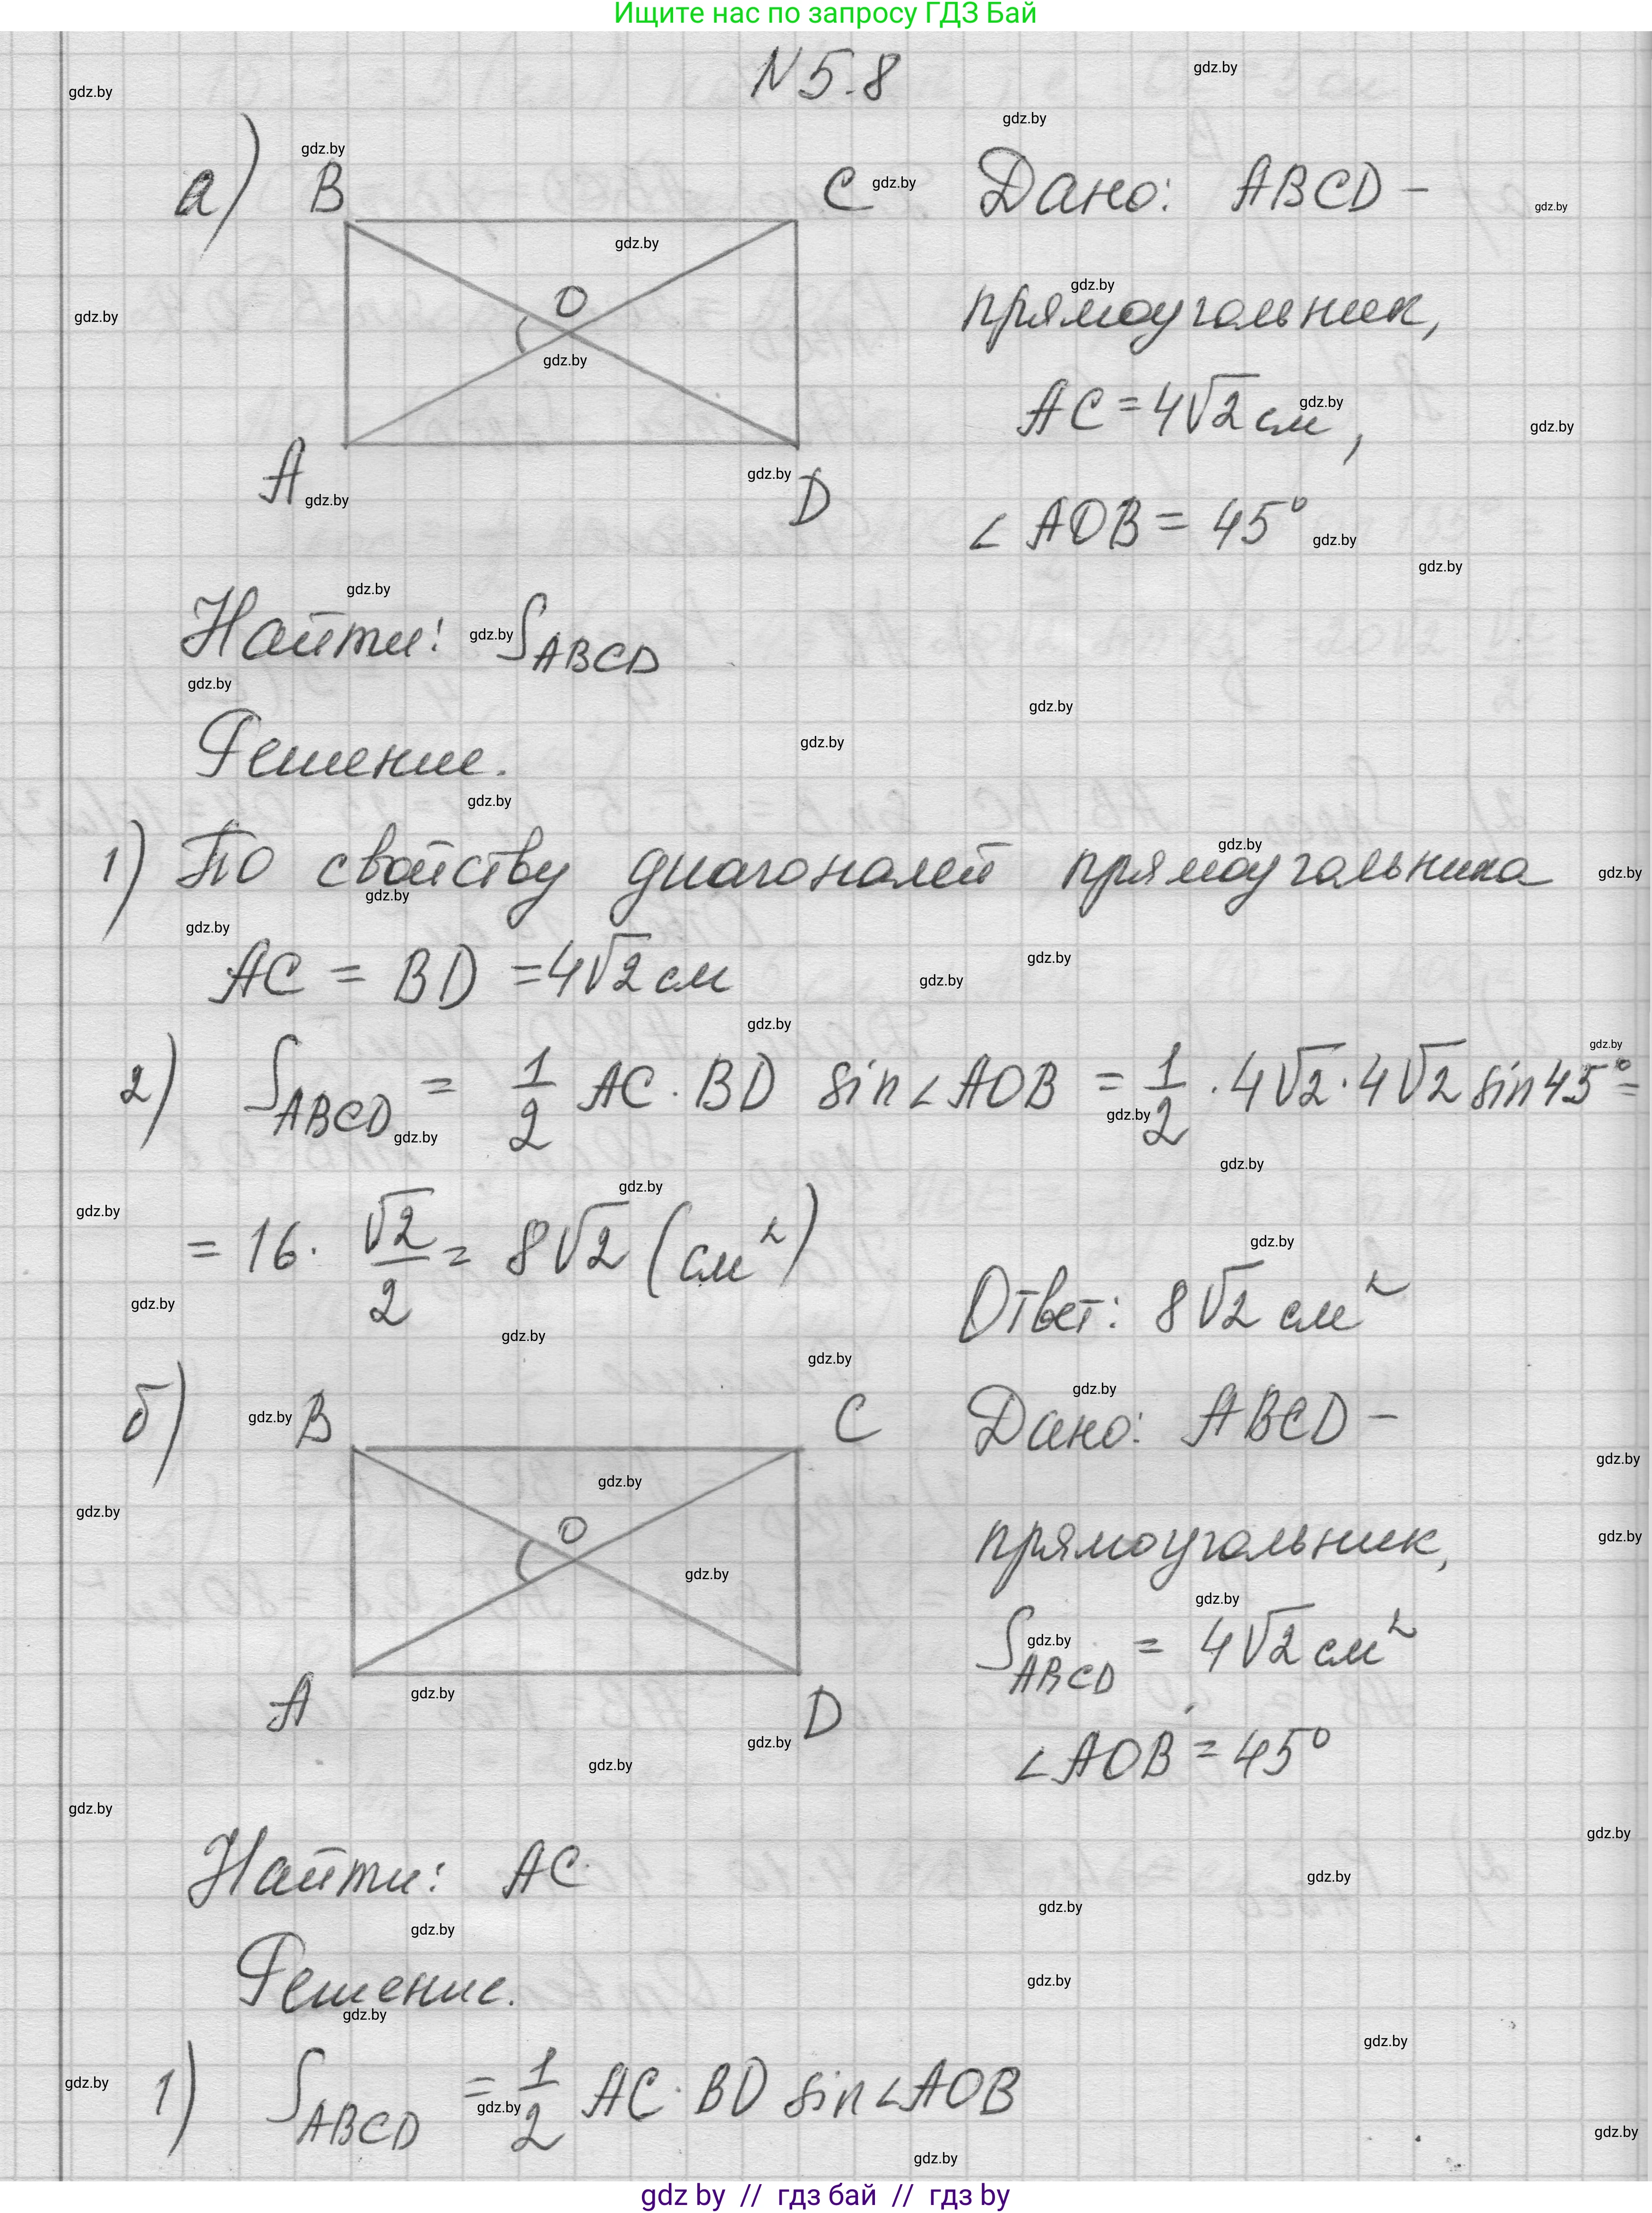 Ищите нас по запросу ГДЗ Бай
N 5.8
а) B C Дано: ABCD -
O прямоугольник,
AC = 4√2 см,
A D ∠AOB = 45°
Найти: S_ABCD
Решение.
1) По свойству диагоналей прямоугольника
AC = BD = 4√2 см
2) S_ABCD = 1/2 AC · BD sin∠AOB = 1/2 · 4√2 · 4√2 sin 45° =
= 16 · √2/2 = 8√2 (см²)
Ответ: 8√2 см²
б) B C Дано: ABCD -
O прямоугольник,
S_ABCD = 4√2 см²,
A D ∠AOB = 45°
Найти: AC
Решение.
1) S_ABCD = 1/2 AC · BD sin∠AOB
gdz by // гдз бай // гдз by